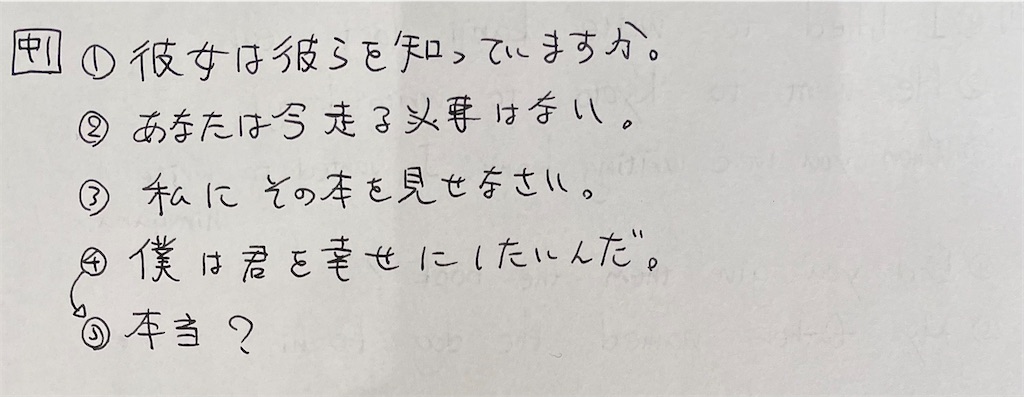 中1 ① 彼女は彼らを知っていますか。
② あなたは今走る必要はない。
③ 私にその本を見せなさい。
④ 僕は君を幸せにしたいんだ。
⑤ 本当?